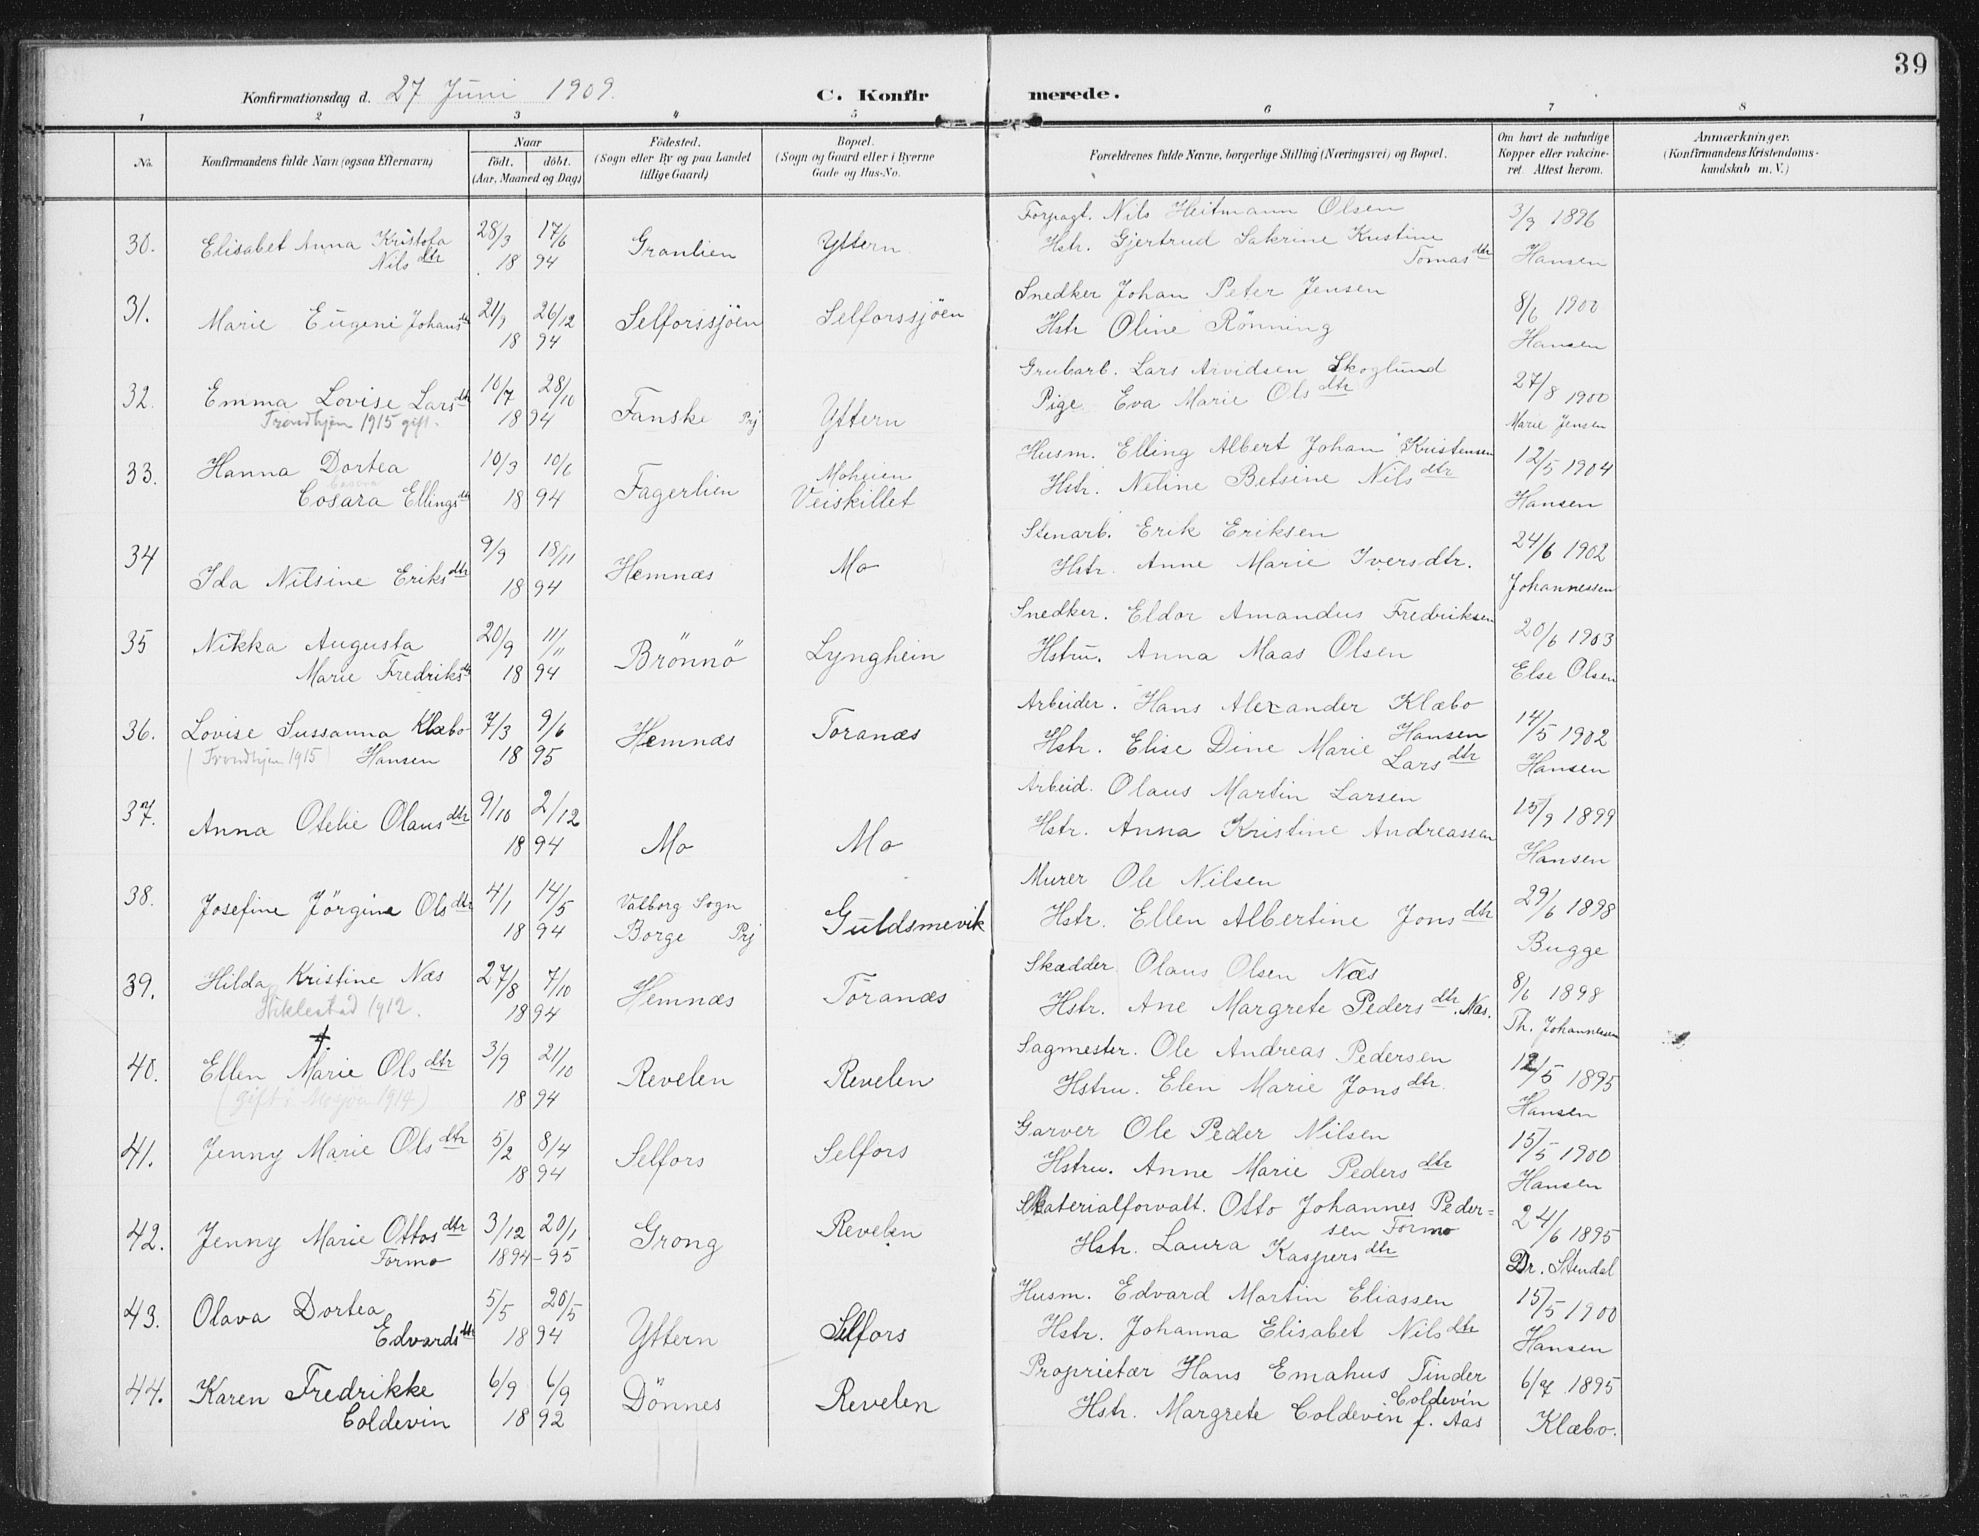 39
Konfirmationsdag d. 27 Juni 1909. C. Konfir merede.
1 2 3 4 5 6 7 8
No. Konfirmandens fulde Navn (ogsaa Efternavn) Naar født. døbt. (Aar, Maaned og Dag) Födested. (Sogn eller By og paa Landet tillige Gaard) Bopæl. (Sogn og Gaard eller i Byerne Gade og Hus-No. Forældrenes fulde Navne, borgerlige Stilling (Næringsvei) og Bopæl. Om havt de naturlige Kopper eller vakcineret. Attest herom. Anmærkninger. (Konfirmandens Kristendomskundskab m. V.)
30. Elisabet Anna Kristofa 28/3 17/6 Granlien Yttern Forpagt. Nils Heitmann Olsen 3/9 1896
Nils dtr 18 94 Hstr. Gjertrud Sakrine Kristine Tomas dtr Hansen
31. Marie Eugeni Johans dtr 21/9 26/12 Selforssjöen Selforssjöen Snedker Johan Peter Jensen 8/6 1900
18 94 Hstr Oline Rönning Hansen
32. Emma Lovise Lars dtr 10/7 28/10 Fanske Prj Yttern Grubarb. Lars Arvidsen Skoglund 27/8 1900
Trondhjem 1915 gift. 18 94 Pige Eva Marie Ols dtr Marie Jensen
33. Hanna Dortea 10/3 10/6 Fagerlien Moheien Husm. Elling Albert Johan Kristensen 12/5 1904
Cosara Ellings dtr 18 94 Veiskillet Hstr. Neline Betsine Nils dtr Hansen
34 Ida Nilsine Eriks dtr 9/9 18/11 Hemnæs Mo Stenarb. Erik Eriksen 24/6 1902
18 94 Hstr. Anne Marie Iversdtr. Johannessen
35 Nikka Augusta 20/9 11/11 Brönnö Lynghein Snedker. Eldor Amandus Fredriksen 20/6 1903
Marie Fredriks dtr 18 94 Hstru. Anna Maas Olsen Else Olsen
36. Lovise Sussanna Klæbo 7/3 9/6 Hemnæs Toranæs Arbeider. Hans Alexander Klæbo Hansen 14/5 1902
(Trondhjem 1915) Hansen 18 95 Hstr. Elise Dine Marie Lars dtr Hansen
37. Anna Otelie Olaus dtr 9/10 2/12 Mo Mo Arbeid. Olaus Martin Larsen 15/9 1899
18 94 Hstr. Anna Kristine Andreassen Hansen
38. Josefine Jörgine Ols dtr 4/1 14/5 Valborg Sogn Guldsmevik Murer Ole Nilsen 29/6 1898
18 94 Borge Prj Hstr. Ellen Albertine Jons dtr Bugge
39. Hilda Kristine Næs 27/8 7/10 Hemnæs Toranæs Skædder Olaus Olsen Næs 8/6 1898
Stiklestad 1912. 18 94 Hstr. Ane Margrete Peders dtr. Næs. Th. Johannessen
40. Ellen Marie Ols dtr 3/9 21/10 Revelen Revelen Sagmester. Ole Andreas Pedersen 12/5 1895
(gift i Mosjøen 1914) 18 94 Hstru. Elen Marie Jons dtr. Hansen
41. Jenny Marie Ols dtr 5/2 8/4 Selfors Selfors Garver Ole Peder Nilsen 15/5 1900
18 94 Hstru. Anne Marie Peders dtr Hansen
42. Jenny Marie Ottos dtr 3/12 20/1 Grong Revelen Materialforvalt. Otto Johannes Pedersen Formo 24/6 1895
Formo 1894-95 Hstr. Laura Kaspers dtr Dr. Stendal
43. Olava Dortea 5/5 20/5 Yttern Selfors Husm. Edvard Martin Eliassen 15/5 1900
Edvards dtr 18 94 Hstr. Johanna Elisabet Nils dtr Hansen
44. Karen Fredrikke 6/9 6/9 Dönnes Revelen Proprietær Hans Emahus Tinder Coldevin 6/7 1895
Coldevin 18 92 Hstr. Margrete Coldevin f. Aas Klæbo.